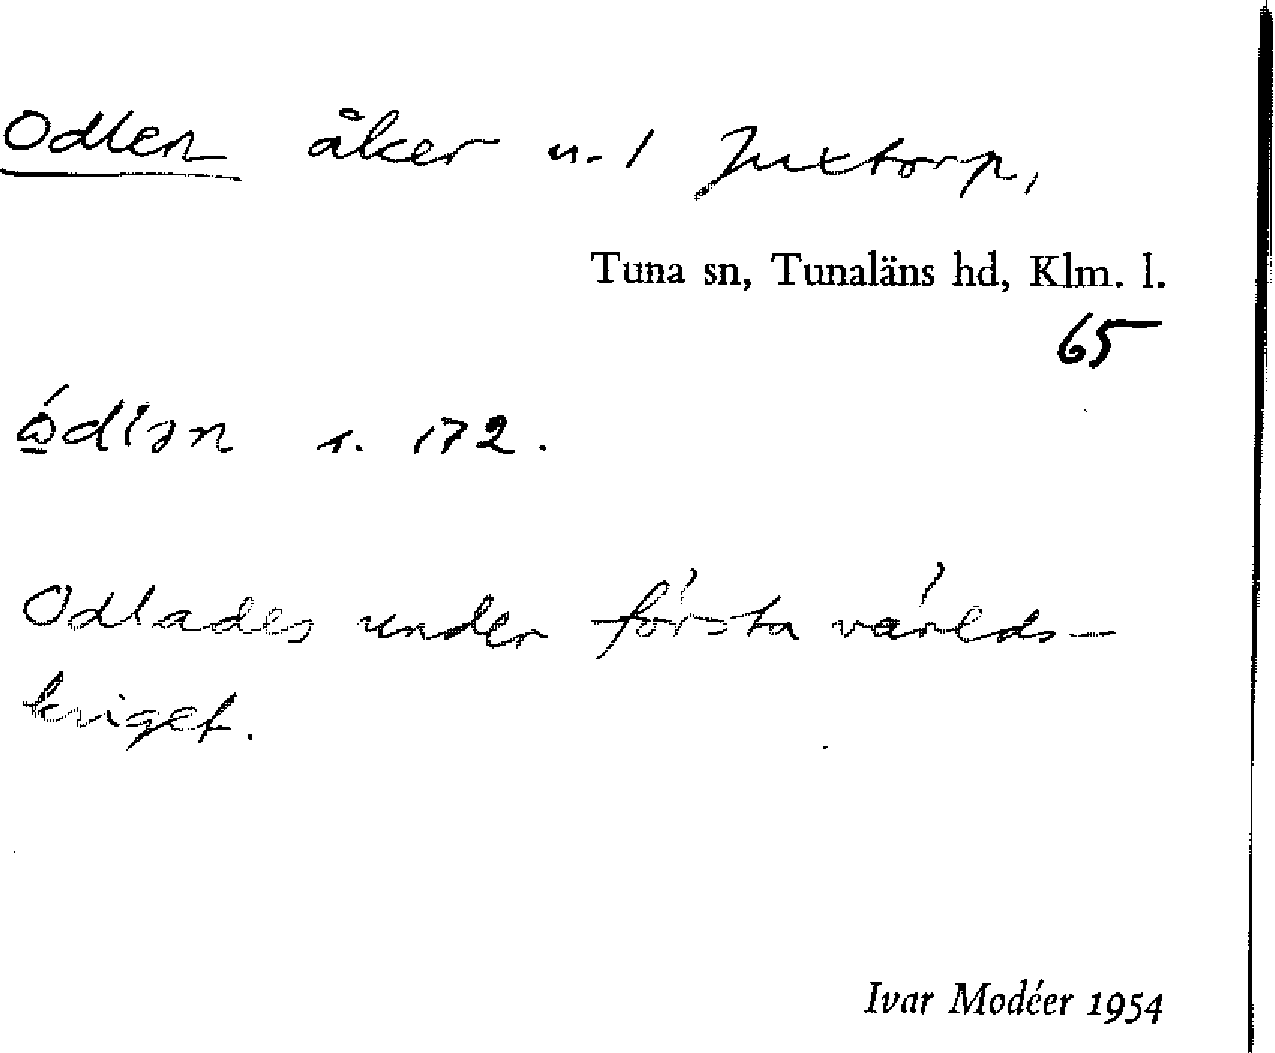 Odlen åker n. 1 Juxtorp,
Tuna sn, Tunaläns hd, Klm. l.
65
ώdlən s. 172.
Odlades under första världs-
kriget.
Ivar Modéer 1954